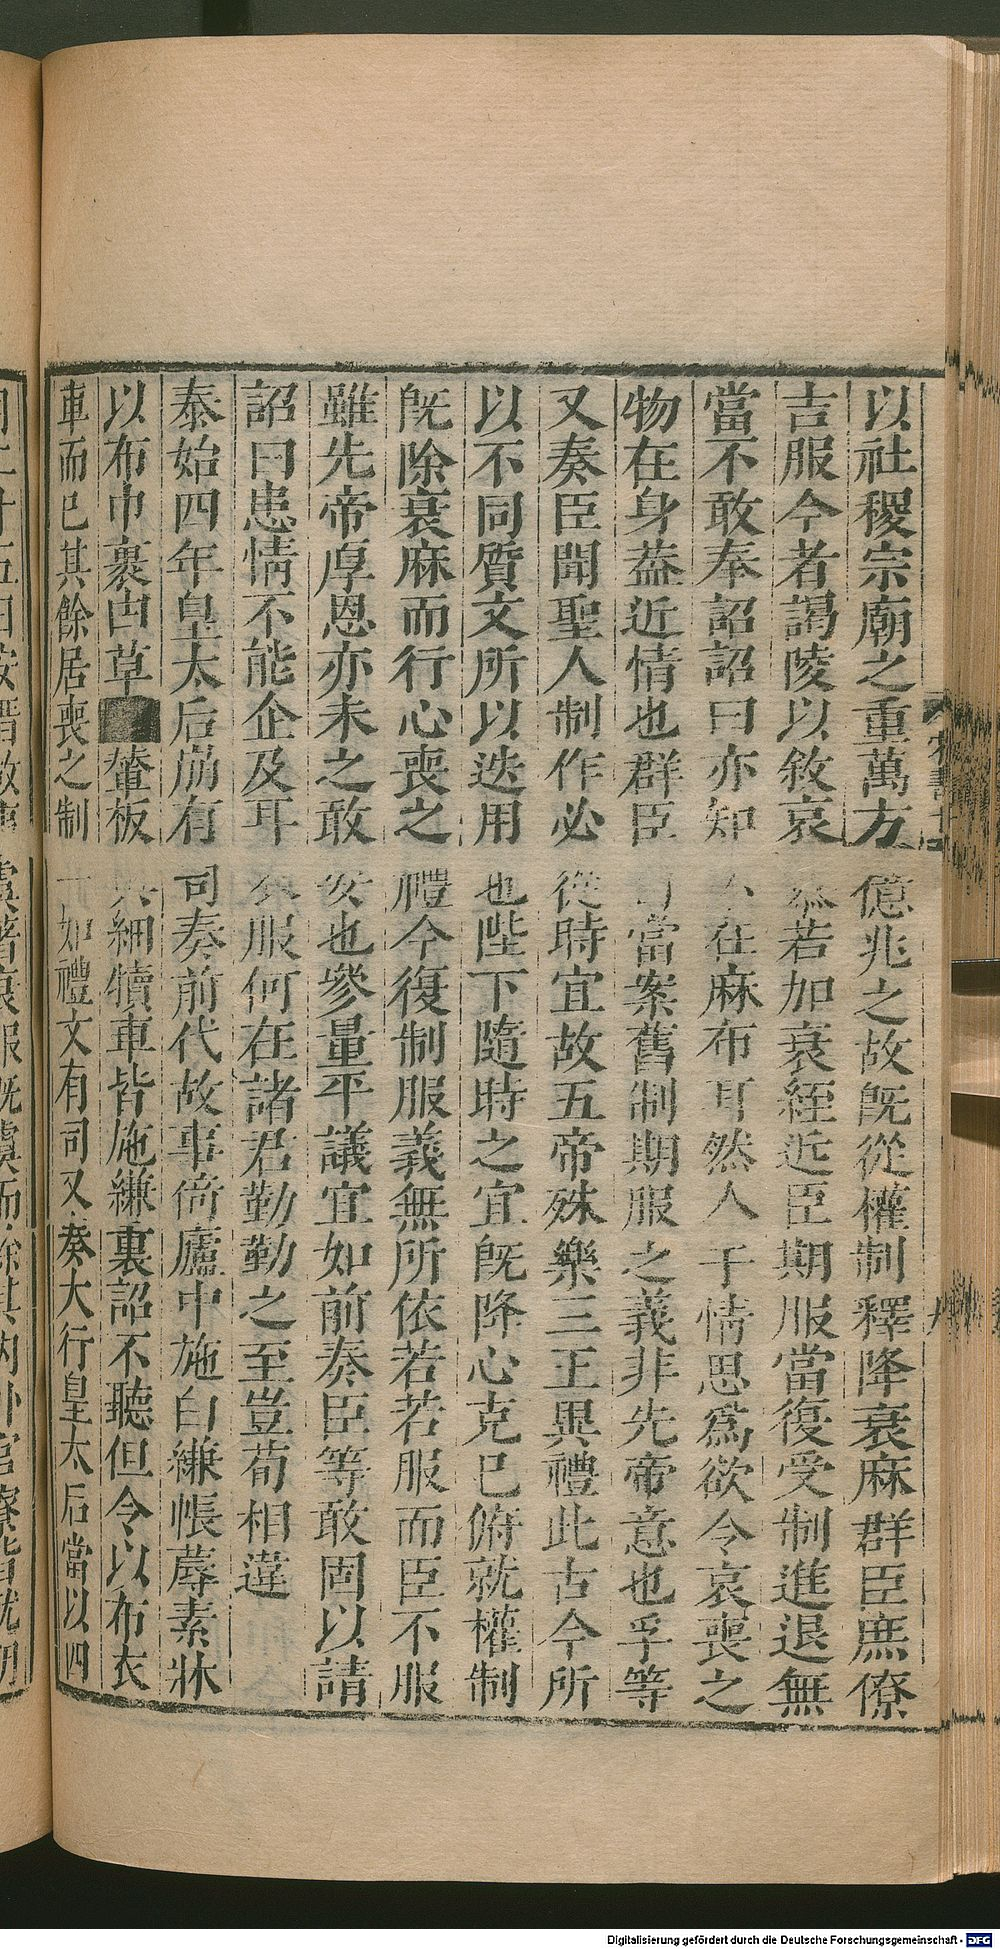 以社稷宗廟之重萬方億兆之故既從權制釋降衰麻群臣庶僚
吉服今者謁陵以敘哀慕若加衰絰近臣期服當復受制進退無
當不敢奉詔詔曰亦知不在麻布耳然人子情思爲欲令哀喪之
物在身蓋近情也群臣自當案舊制期服之義非先帝意也孚等
又奏臣聞聖人制作必從時宜故五帝殊樂三王異禮此古今所
以不同質文所以迭用也陛下隨時之宜既降心克己俯就權制
既除衰麻而行心喪之禮今復制服義無所依若若服而臣不服
雖先帝厚恩亦未之敢安也參量平議宜如前奏臣等敢固以請
詔曰患情不能企及耳衣服何在諸君勤勤之至豈苟相違
泰始四年皇太后崩有司奏前代故事倚廬中施白縑帳蓐素牀
以布巾裹甴草輦板輿細犢車皆施縑裏詔不聽但令以布衣
車而已其餘居喪之制一如禮文有司又奏大行皇太后當以四
Digitalisierung gefördert durch die Deutsche Forschungsgemeinschaft - DFG